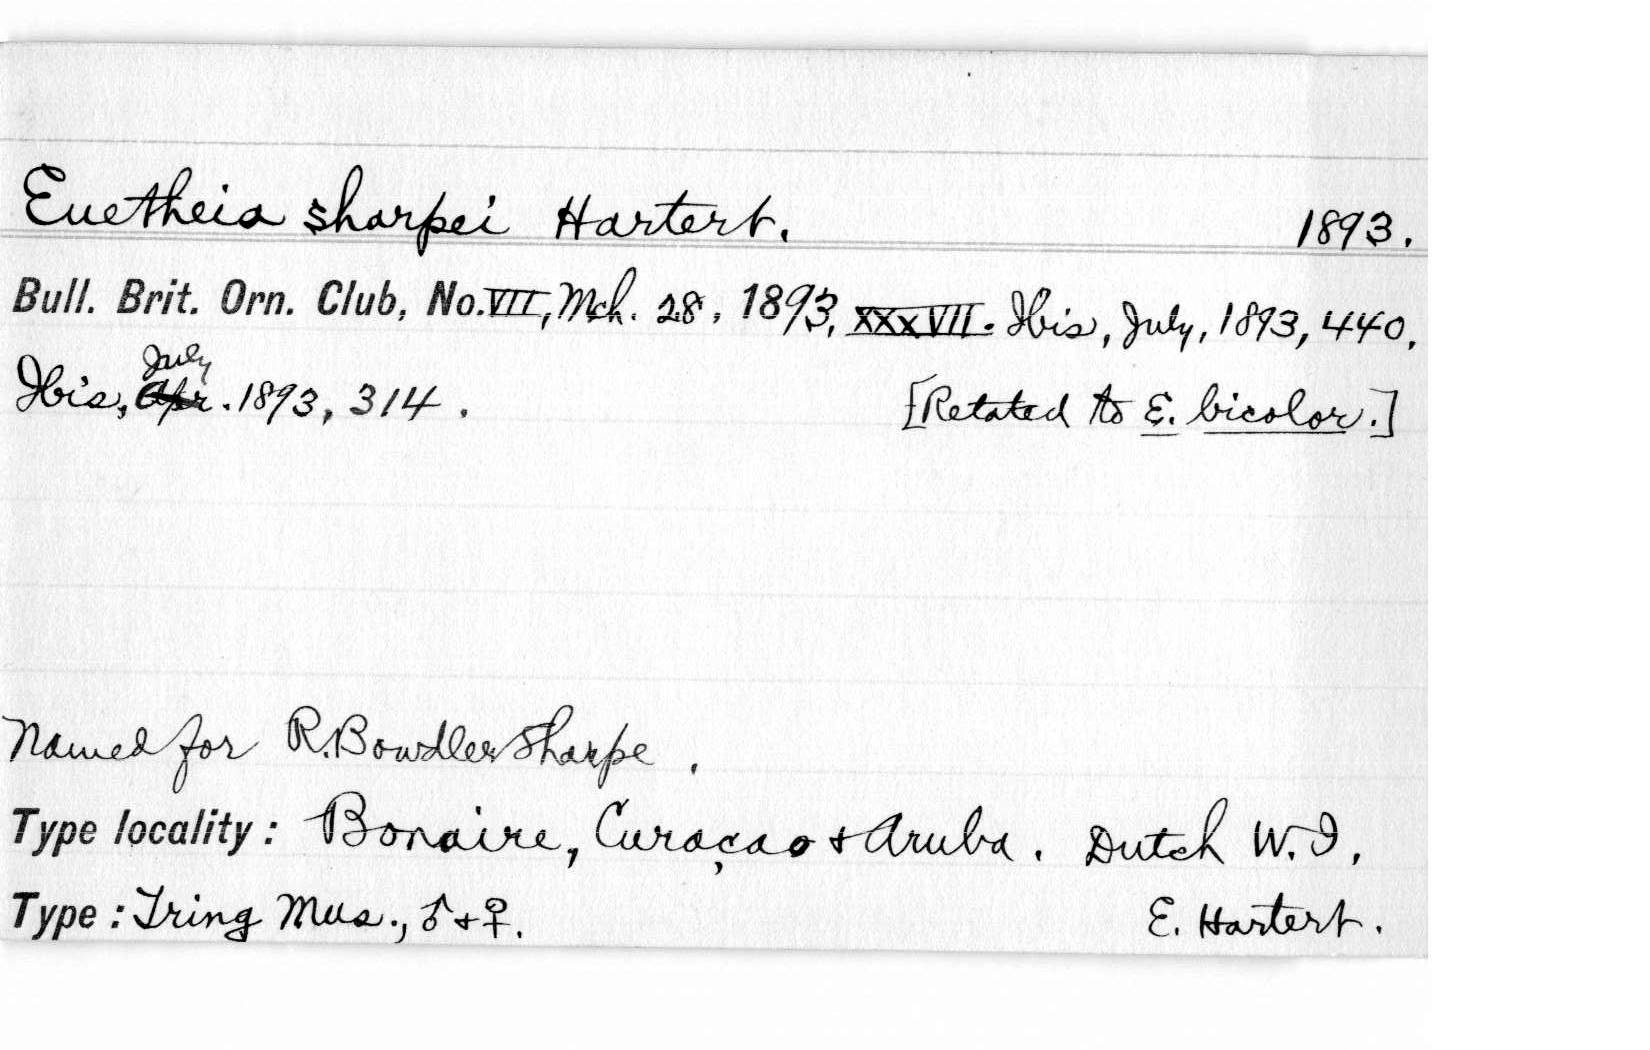 Euetheia sharpei Hartert. 1893.
Bull. Brit. Orn. Club, No. VII, Mch. 28, 1893, XXXVII. Ibis, July, 1893, 440.
July
Ibis, Apr. 1893, 314. [Related to E. bicolor.]
Named for R. Bowdler Sharpe.
Type locality: Bonaire, Curaçao + Aruba. Dutch W.I.
Type: Tring Mus., ♂ + ♀. E. Hartert.